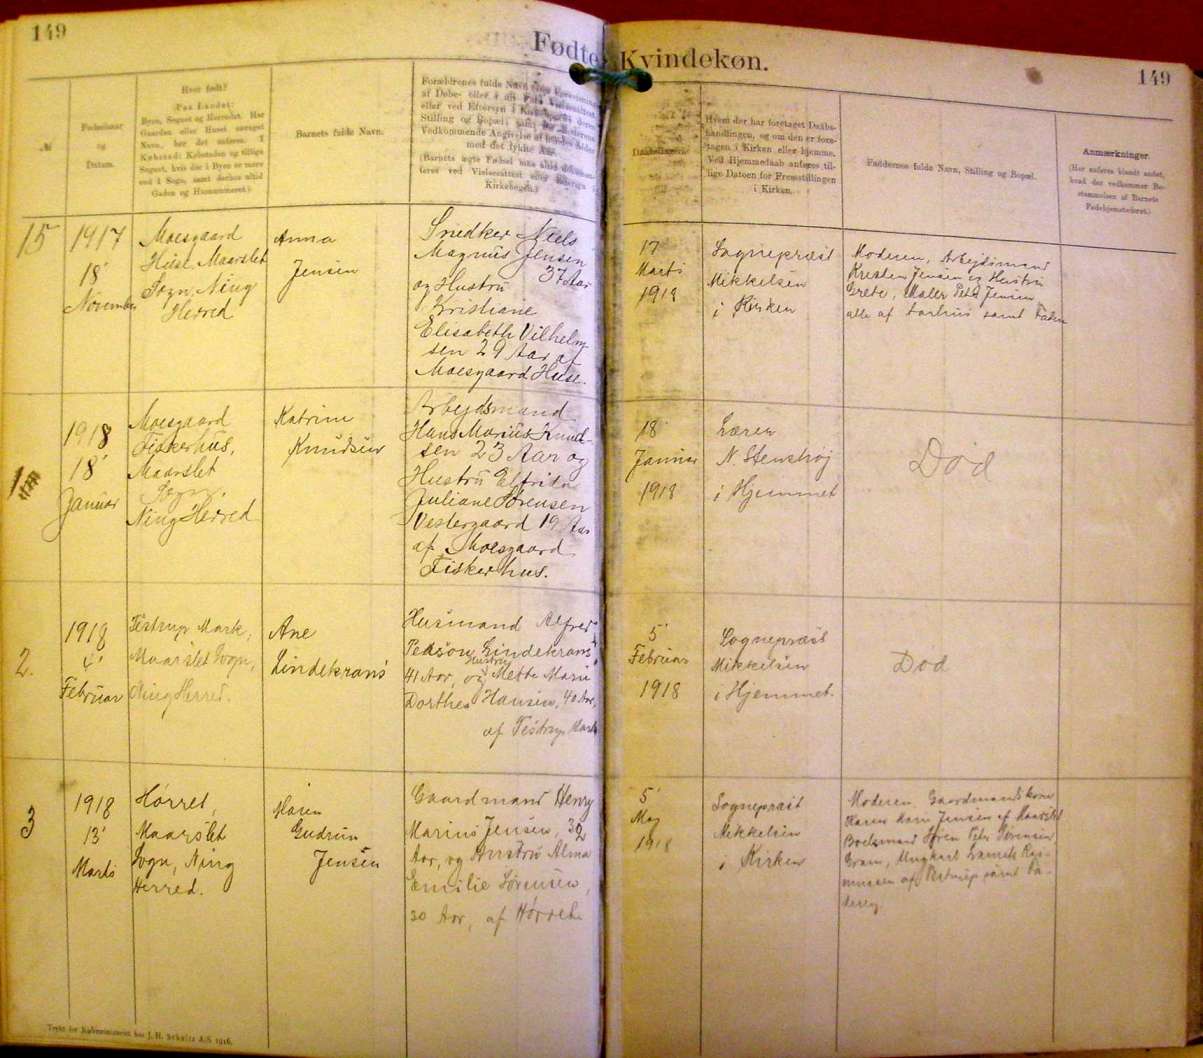 149
Fødte Kvindekøn.
149
№
Fødselsaar
og
Datum.
Hvor født?
(Paa Landet:
Byen, Sognet og Herredet. Har
Gaarden eller Huset særeget
Navn, bør det anføres. I
Købstad: Købstaden og tillige
Sognet, hvis der i Byen er mere
end 1 Sogn, samt derhos altid
Gaden og Husnummeret.)
Barnets fulde Navn.
Forældrenes fulde Navn
Stilling og Bopæl, samt
Vedkommende Angivelse af
med det fyldte Aar.
(Barnets ægte Fødsel maa altid
Kirkebogen.)
Daabsdagen.
Hvem der har foretaget Daabs-
handlingen, og om den er fore-
tagen i Kirken eller hjemme.
Ved Hjemmedaab anføres til-
lige Datoen for Fremstillingen
i Kirken.
Faddernes fulde Navn, Stilling og Bopæl.
Anmærkninger.
(Her anføres blandt andet,
hvad der vedkommer Be-
stemmelsen af Barnets
Fødehjemsteder.)
15
1917
18'
November
Moesgaard
Huse, Maarslet
Sogn, Ning
Herred
Anna
Jensen
Snedker Niels
Magnus Jensen
37 Aar
og Hustru
Kristiane
Elisabeth Vilhelm-
sen 29 Aar af
Moesgaard Huse.
17
Marts
1918
Sognepræst
Mikkelsen
i Kirken
Moderen, Arbejdsmand
Kresten Jensen og Hustru
Grete, Maler Peter Jensen
alle af Aarhus samt Faderen
1
1918
18'
Januar
Moesgaard
Fiskerhus,
Maarslet
Sogn,
Ning Herred
Katrine
Knudsen
Arbejdsmand
Hans Marius Knud-
sen 23 Aar og
Hustru Elfrida
Juliane Sørensen
Vestergaard 19 Aar
af Moesgaard
Fiskerhus.
18'
Januar
1918
Lærer
N. Stenshøj
i Hjemmet
Død
2.
1918
4'
Februar
Testrup Mark,
Maarslet Sogn,
Ning Herred.
Ane
Lindekrans
Husmand Alfred
Lindekrans
Hustru
41 Aar, og Mette Marie
Dorthea Hansen, 40 Aar,
af Testrup Mark
5'
Februar
1918
Sognepræst
Mikkelsen
i Hjemmet
Død
3
1918
13'
Marts
Hørret,
Maarslet
Sogn, Ning
Herred.
Maren
Gudrun
Jensen
Gaardmand Henry
Marius Jensen, 32
Aar, og Hustru Alma
Emilie Sørensen,
30 Aar, af Hørret.
5'
Maj
1918
Sognepræst
Mikkelsen
i Kirken
Moderen, Gaardmandskone
Karen Marie Jensen af Maarslet
Boelsmand Søren Peter Sørensen
Gram, Ungkarl Ras-
mussen af Testrup samt Fa-
deren.
Trykt for Kultusministeriet hos J. H. Schultz A/S 1916.